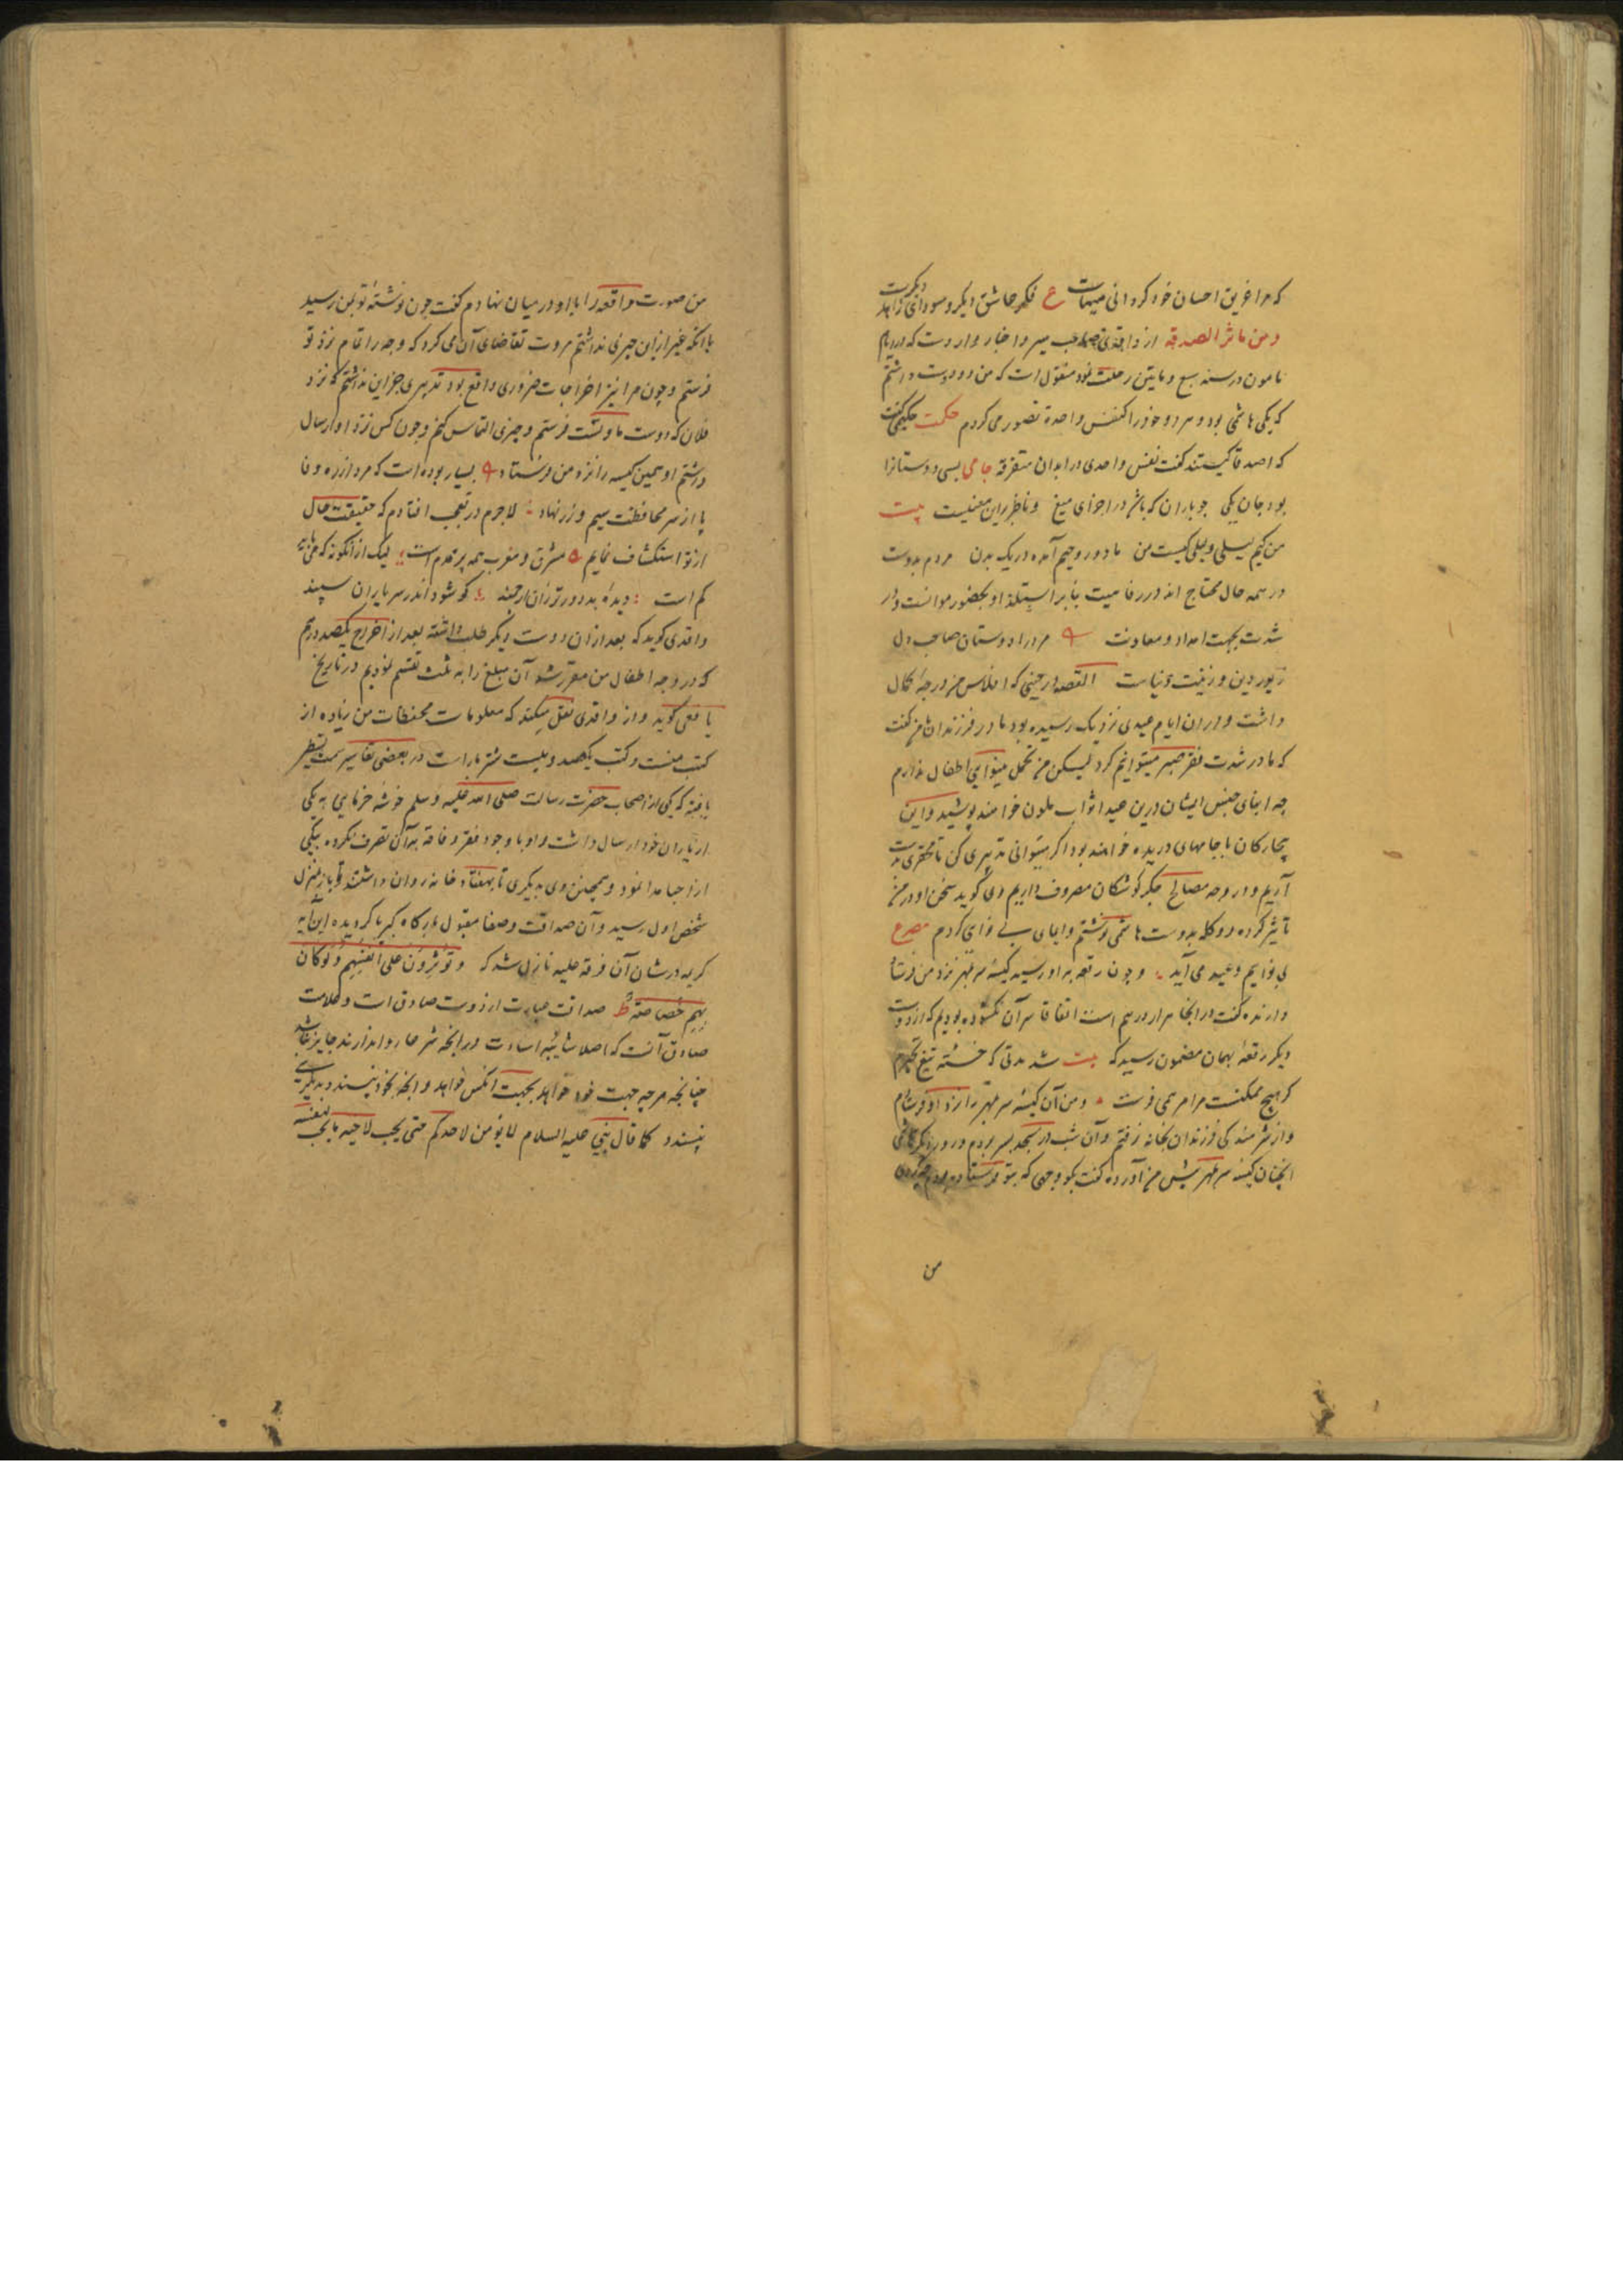 که مرا غریق احسان خود کردانی هیهات ع فکر عاشق دیکر و سودای زاهد دیکرست
ومن ماثر الصدقه از واقدی صاحب سیر و اخبار وارد است که در ایام
مامون در سنه سبع و مایتین رحلت نمود منقول است که من دو دوست داشتم
که یکی هاشمی بود و هر دو خود را کنفس واحدة تصور می کردم حکمت حکیمی گفت
که اصدقا کیستند کفت نفس واحدی در ابدان متفرقه جامی بسی دوستانرا
بود جان یکی چو باران که باشد در اجزای میغ و ناظر باین معنیست بیت
من کیم لیلی و لیلی کیست من ما دو روحیم آمده در یک بدن مردم بدوست
در همه حال محتاج اند در رفاهیت بنابر استلذاذ بحضور و موانست و در
شدت بجهت امداد و معاونت مرد را دوستان صاحب دل
زیور دین و زینت دنیاست القصه در حینی که افلاس من درجه کمال
داشت و در ان ایام عیدی نزدیک رسیده بود مادر فرزندان من کفت
که ما در شدت فقر صبر میتوانیم کرد لیکن من تحمل بینوایی اطفال ندارم
چه ابنای جنس ایشان درین عید اثواب ملون خواهند پوشید و این
بیچارکان با جامهای دریده خواهند بود اکر میتوانی تدبیری کن تا محقری بدست
آریم و در وجه مصالح جکر کوشکان مصروف داریم وی کوید سخن او در من
تاثیر کرده دو کلمه بدوست هاشمی نوشتم و ایمای بی نوای کردم مصرع
بی نوایم و عید می آید و چون رقعه به او رسید کیسه سر بمهر نزد من فرستاد
دارنده کفت در اینجا هزار درهم است اتفاقا سر آن نکشوده بودیم که از دوست
دیکر رقعه بهمان مضمون رسید که بیت شد مدتی که خسته تیغ تحیرم
کز هیچ ممکنت مرا مرهمی فرست و من آن کیسه سر بمهر را نزد او فرستادم
و از شرمندکی فرزندان بخانه نرفتم و آن شب در مسجد بسر بردم و روز دیکر هاشمی
انچنان کیسه سر بمهر پیش من آورده کفت بکو وجهی که بتو فرستاده بودم چه کردی
من
من صورت واقعه را با او در میان نهادم کفت چون نوشته تو بمن رسید
با آنکه غیر از ان چیزی نداشتم مروت تقاضای آن می کرد که وجه را تمام نزد تو
فرستم و چون مرا نیز اخراجات ضروری واقع بود تدبیری جز این نداشتم که نزد
فلان که دوست ما و تست فرستم و چیزی التماس کنم و چون کس نزد او ارسال
داشتم او همین کیسه را نزد من فرستاد بسیار بوده است که مرد از ره وفا
پا از سر محافظت سیم و زر نهاد لاجرم در تعجب افتادم که حقیقت حال
از تو استکشاف نمایم مشرق و مغرب همه پر مردم است لیک از انکونه که می باید
کم است دیده بد دور توزان ارجمند کو شود اندر سر یاران سپند
واقدی کوید که بعد از ان دوست دیکر طلب داشته بعد از اخراج یکصد درهم
که در وجه اطفال من مقرر شد آن مبلغ را به ثلث تقسیم نمودیم در تاریخ
یافعی کوید و از واقدی نقل میکند که معلومات محفظات من زیاده از
کتب منست و کتب یکصد و بیست شتر بار است در بعضی تفاسیر سمت تسطیر
یافته که یکی از اصحاب حضرت رسالت صلی الله علیه وسلم خوشه خرمایی به یکی
از یاران خود ارسال داشت و او با وجود فقر و فاقه به آن تصرف نکرده بیکی
از احبا مدا نمود و همچنین وی به دیکری تا بهفتاد خانه روان داشتند و باز بمنزل
شخص اول رسید و آن صداقت و صفا مقبول بارکاه کبریا کردیده این آیه
کریمه در شان آن فرقه علیه نازل شد که ویوثرون علی انفسهم ولو کان
بهم خصاصة ط صداقت عبارت از دوست صادق است و علامت
صادق آنست که اصلا شائبه اساءت در انچه شرعا روا ندارند جایز نباشد
چنانچه هرچه جهت خود خواهد بجهت آنکس خواهد و انچه بخود نپسندد بدیکری
نپسندد کما قال نبی علیه السلام لا یؤمن احدکم حتی یحب لاخیه ما یحب لنفسه